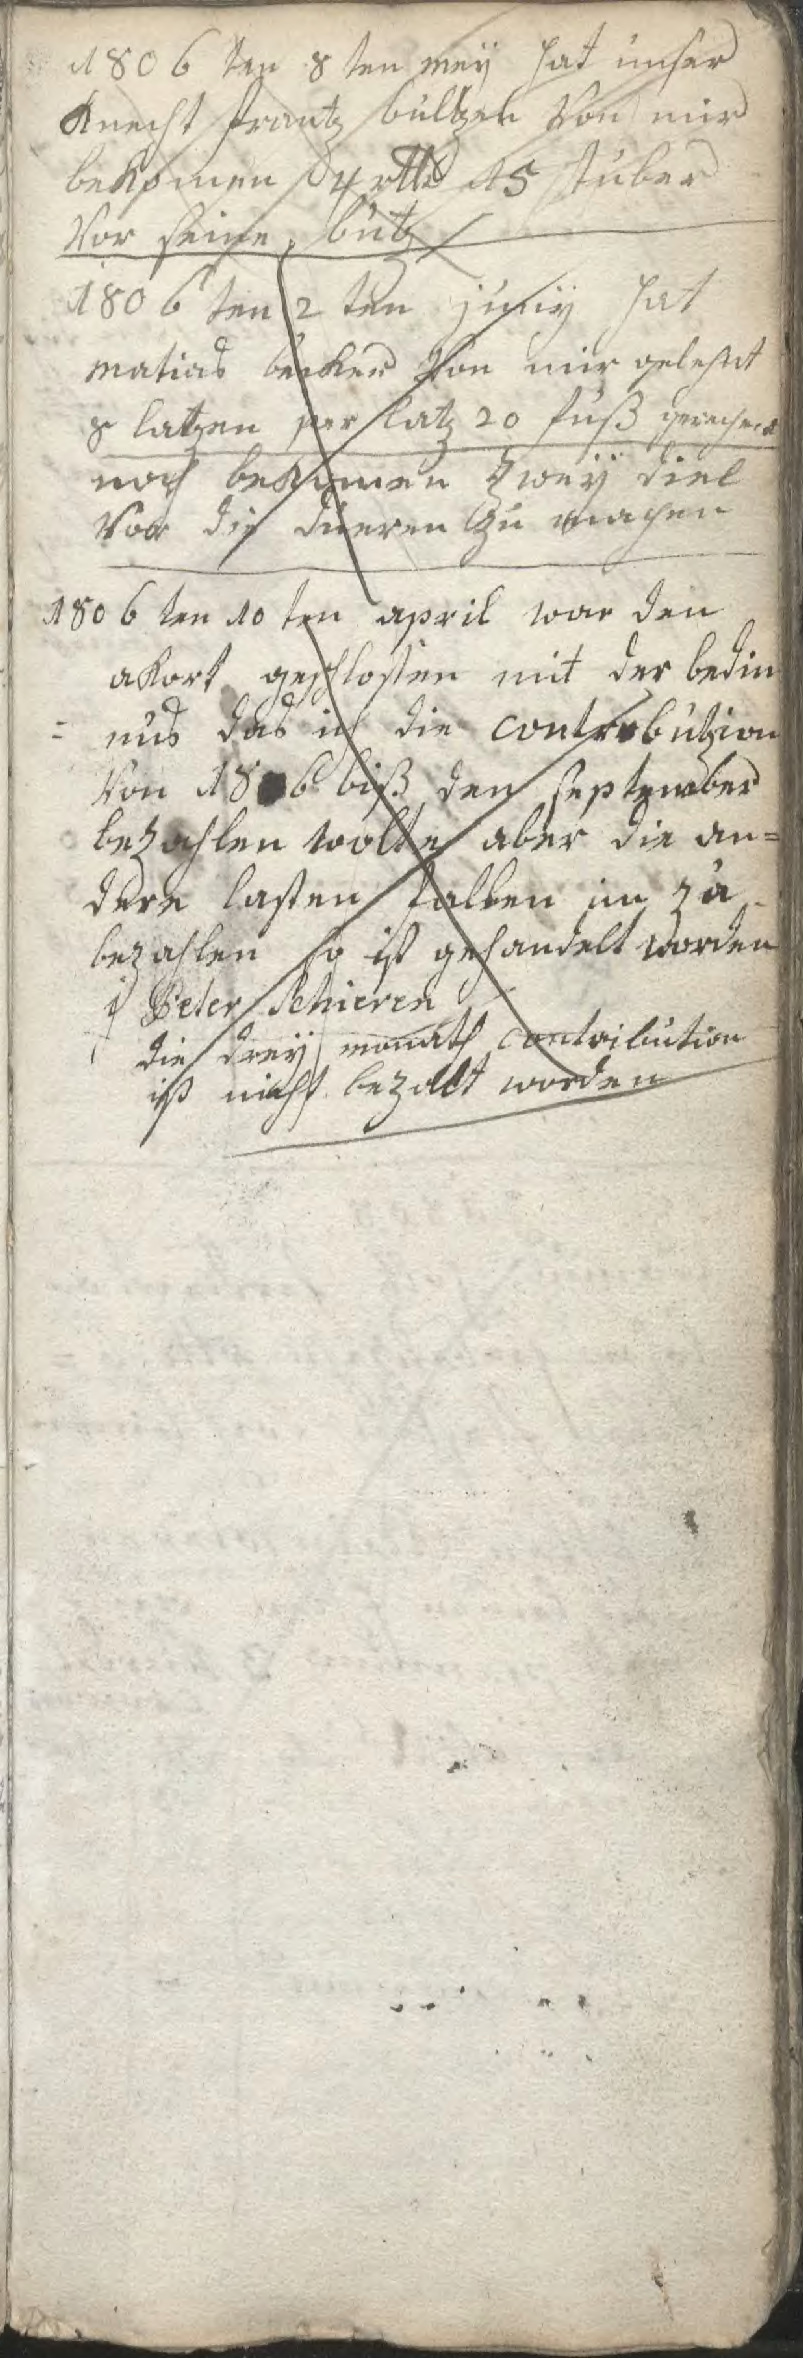 1806 ten 8 ten meÿ hat unser
Knecht frantz bultzen Von mir
bekomen 4 rtlr 15 stuber
Vor seine butz
1806 ten 2 ten juniÿ hat
matias becker Von mir gelehnt
8 latzen per latz 20 fuß gerechent
noch bekomen zweÿ diel
Vor die dueren zu machen
1806 ten 10 ten april war den
akort geschlossen mit der bedin
= nus das ich die contribution
Von 1806 biß den september
bezahlen wolte aber die an=
dere lasten halben im zu
bezahlen so ist gehandelt worden
Peter Schieren
die dreÿ monath contribution
ist nicht bezalt worden